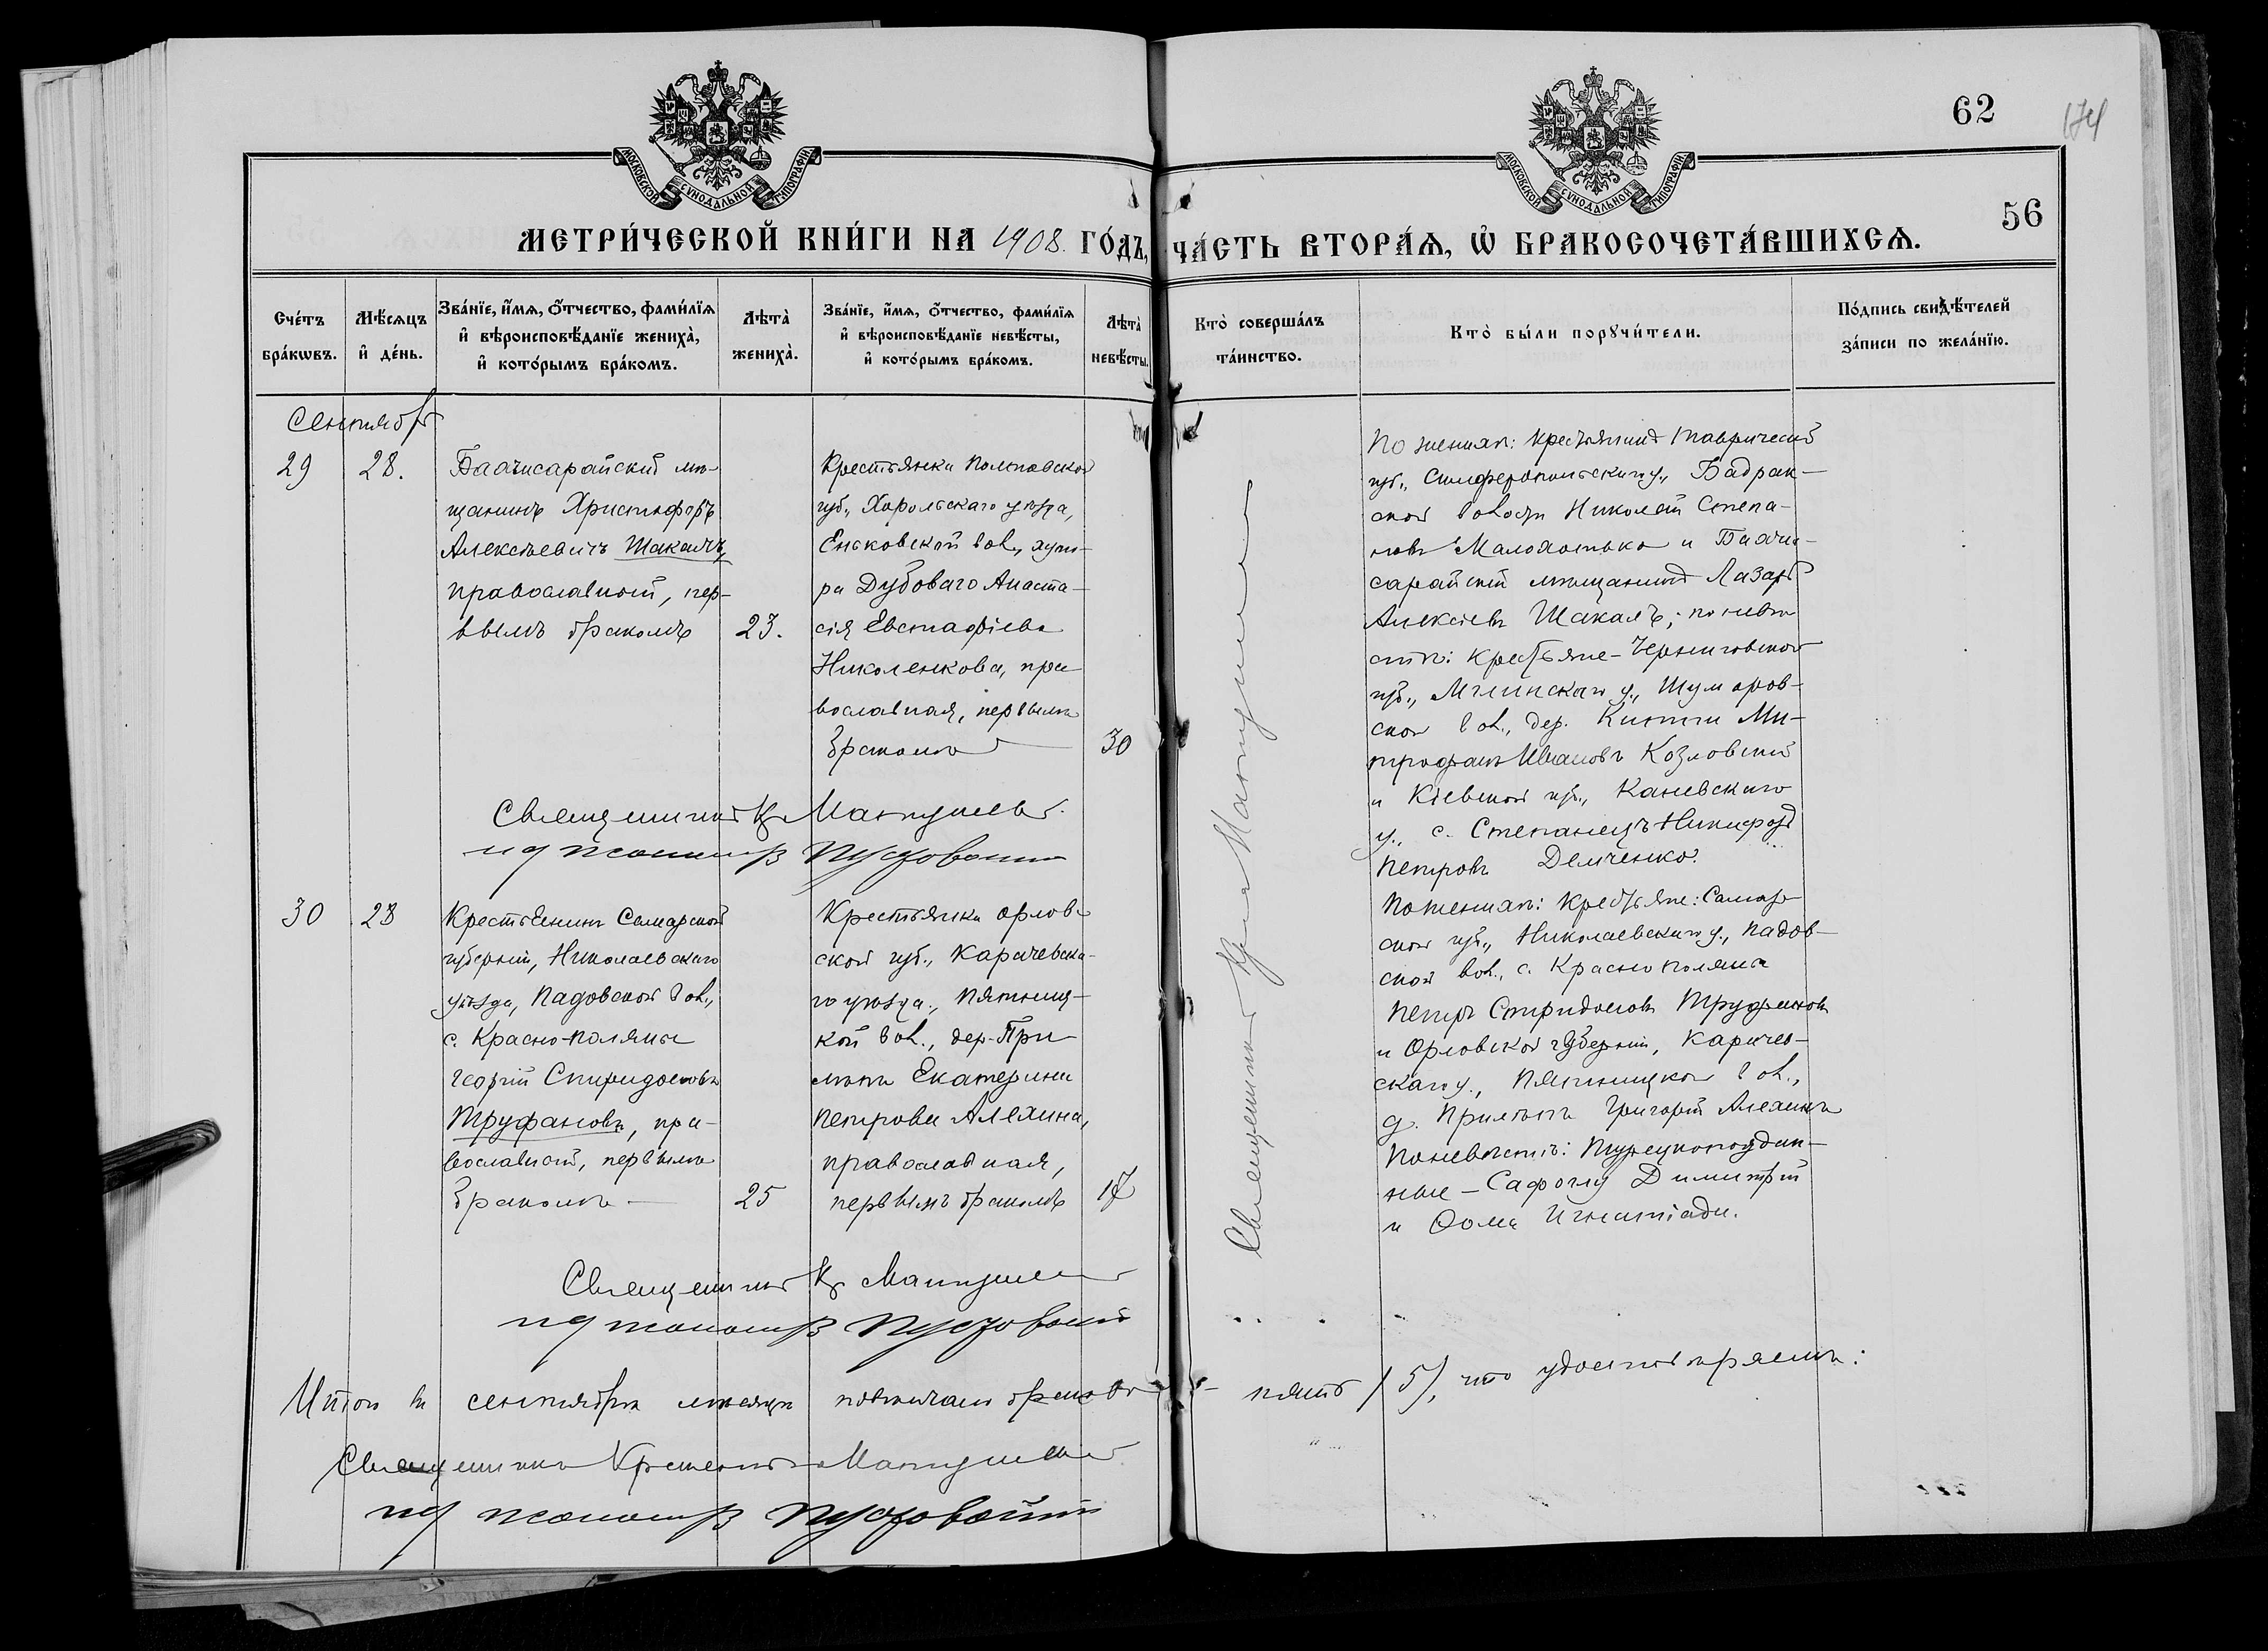 62
174
56
МОСКОВСКОЙ СУНОДАЛЬНОЙ ТИПОГРАФІИ
МОСКОВСКОЙ СУНОДАЛЬНОЙ ТИПОГРАФІИ
МЕТРИ́ЧЕСКОЙ КНИ́ГИ НА 1908. ГО́ДЪ, ЧА́СТЬ ВТОРА́Ѧ, Ѡ҆ БРАКОСОЧЕТА́ВШИХСѦ.
Сче́тъ бра́кѡвъ.
Мѣ́сѧцъ и҆ де́нь.
Зва́нїе, и҆́мѧ, ѻ҆́тчество, фами́лїѧ
и҆ вѣроисповѣ́данїе жениха̀,
и҆ кото́рымъ бра́комъ.
Лѣта̀ жениха̀.
Зва́нїе, и҆́мѧ, ѻ҆́тчество, фами́лїѧ
и҆ вѣроисповѣ́данїе невѣ́сты,
и҆ кото́рымъ бра́комъ.
Лѣта̀ невѣ́сты.
Кто̀ соверша́лъ та́инство.
Кто̀ бы́ли порꙋчи́тели.
По́дпись свидѣ́телей за́писи по жела́нїю.
Сентябрь
29
28.
Бахчисарайскій мѣ-
щанинъ Христофоръ
Алексѣевичъ Шакалъ,
православный, пер-
вымъ бракомъ
23.
Крестьянка Полтавской
губ., Хорольскаго уѣзда,
Еньковской вол., хуто-
ра Дубоваго Анаста-
сія Евстафіева
Николенкова, пра-
вославная, первымъ
бракомъ
30
Священникъ Кр Матушевъ
ид псаломщ Пустовойтъ
Священникъ
По женихѣ: крестьянинъ Таврической
губ., Симферопольскаго у., Бадрак-
ской волости Николай Степа-
новъ Малохатько и Бахчи-
сарайскій мѣщанинъ Лазарь
Алексѣевъ Шакалъ; по невѣ-
стѣ: крестьяне Черниговской
губ., Мглинскаго у., Шумаров-
ской вол., дер. Ми-
трофанъ Ивановъ Козловскій
и Кіевской губ., Каневскаго
у., с. Степанецъ Никифоръ
Петровъ Демченко.
30
28
Крестьянинъ Самарской
губерніи, Николаевскаго
уѣзда, Падовской вол.,
с. Красно-поляны
Георгій Спиридоновъ
Труфановъ, пра-
вославный, первымъ
бракомъ
25
Крестьянка Орлов-
ской губ., Карачевска-
го уѣзда, Пятниц-
кой вол., дер. При-
лѣпъ Екатерина
Петрова Алехина,
православная,
первымъ бракомъ
17
Священникъ Кр Матушевъ
ид псаломщ Пустовойтъ
По женихѣ: крестьяне: Самар-
ской губ., Николаевскаго у., Падов-
ской вол., с. Красно поляны
Петръ Спиридоновъ Труфановъ
и Орловской губерніи, Карачев-
скаго у., Пятницкой вол.,
д. Прилѣпъ Григорій Алехинъ
По невѣстѣ: Турецкоподдан-
ные – Сафоглу Димитрій
и Ѳома Игнатіади.
Итого въ сентябрѣ мѣсяцѣ повѣнчано браковъ – пять (5), что удостовѣряемъ:
Священникъ Матушевъ
ид псаломщ Пустовойтъ